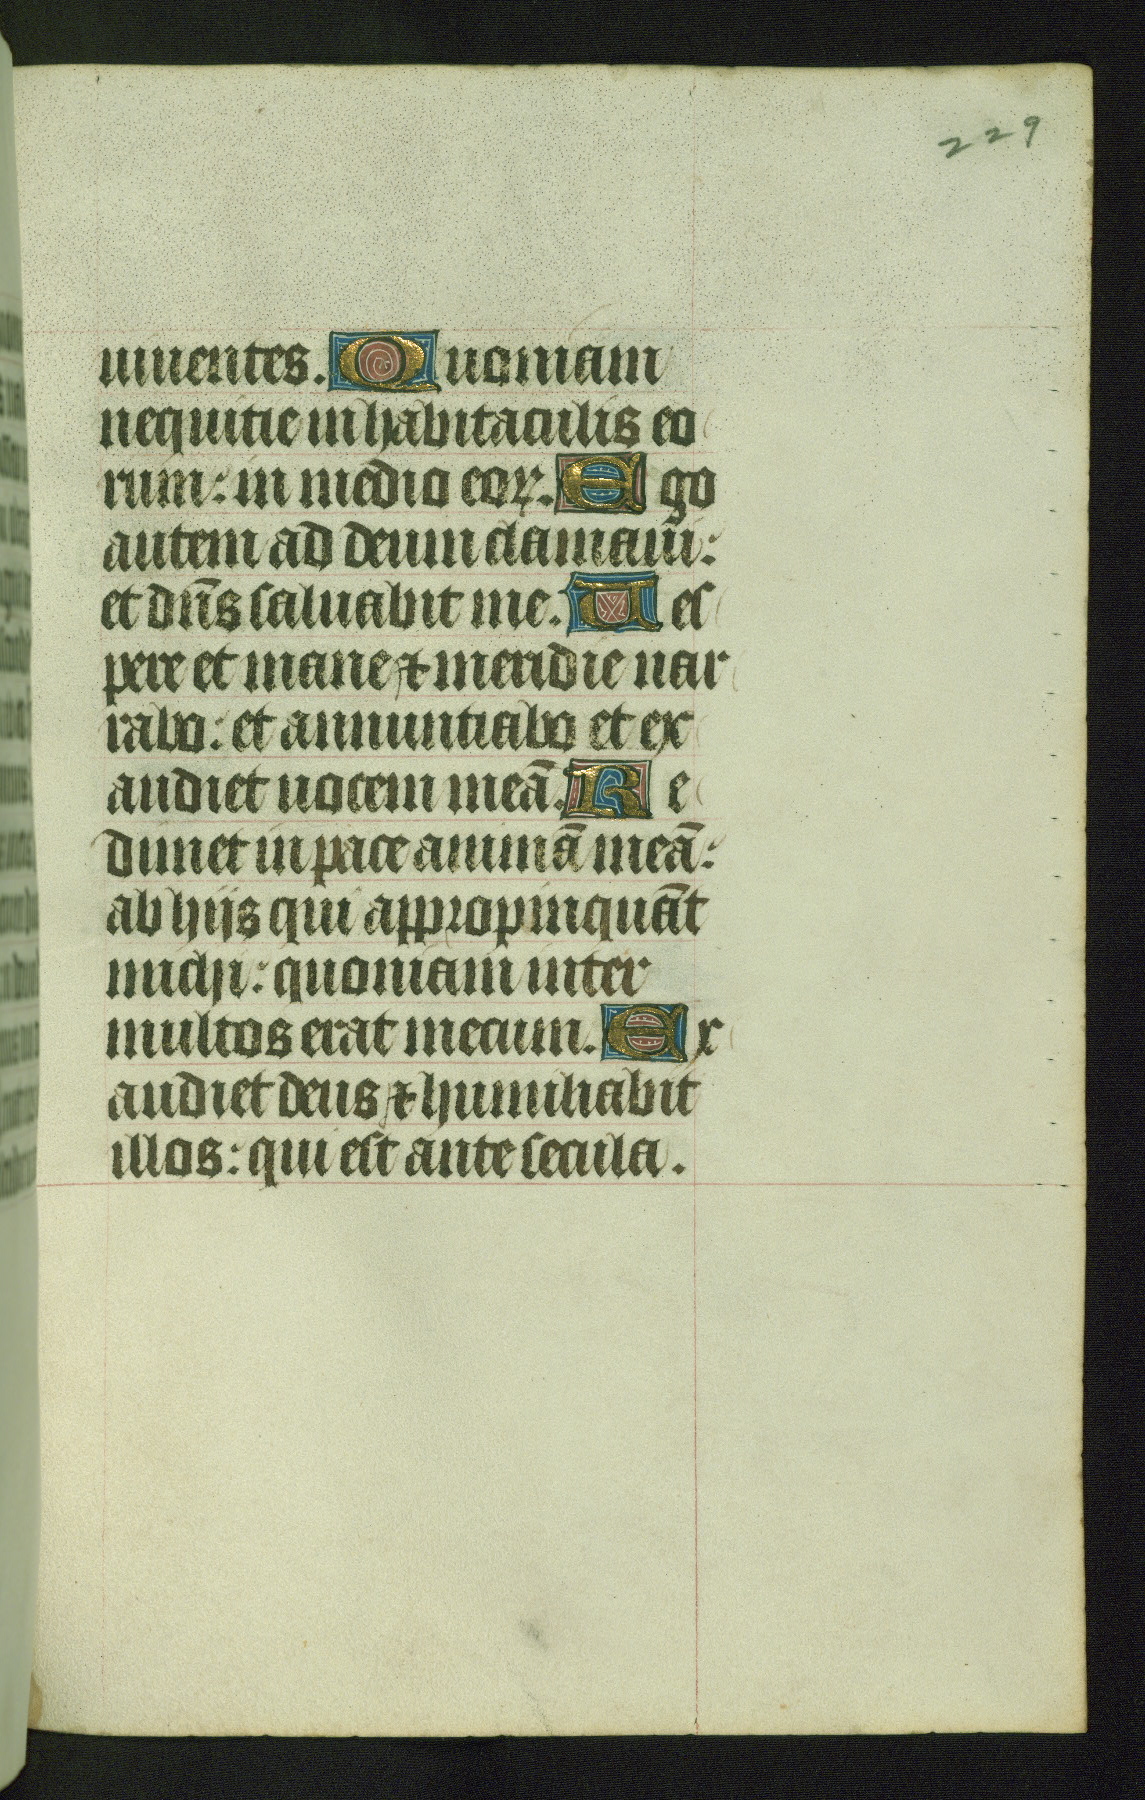 229
uiuentes. Quoniam
nequitie in habitaculis eo
rum: in medio eoꝝ. Ego
autem ad deum clamaui:
et dn̄s saluabit me. Ues
pere et mane ⁊ meridie nar
rabo: et annuntiabo et ex
audiet uocem meā. Re
dimet in pace animā meā:
ab hijs qui appropinquāt
michi: quoniam inter
multos erat mecum. Ex
audiet deus ⁊ humiliabit
illos: qui est ante secula.